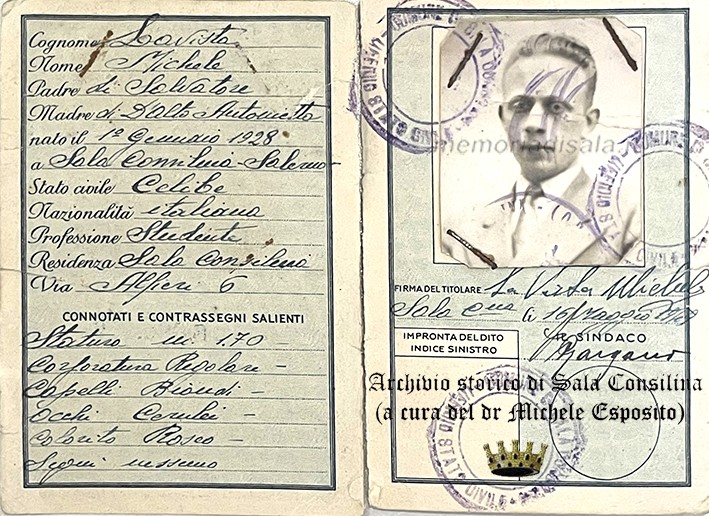 Cognome La Vista
Nome Michele
Padre di Salvatore
Madre di D'Alto Antonietta
nato il 1º Gennaio 1928
a Sala Consilina - Salerno
Stato civile Celibe
Nazionalità italiana
Professione Studente
Residenza Sala Consilina
Via Alfieri 6
CONNOTATI E CONTRASSEGNI SALIENTI
Statura m. 1.70
Corporatura Regolare -
Capelli Biondi -
Occhi Cerulei -
Colorito Roseo -
Segni nessuno
memoriadisala.
FIRMA DEL TITOLARE La Vista Michele
Sala Cna li 16 Maggio
IMPRONTA DEL DITO
INDICE SINISTRO
IL SINDACO
Archivio storico di Sala Consilina
(a cura del dr Michele Esposito)
STATO CIVILE